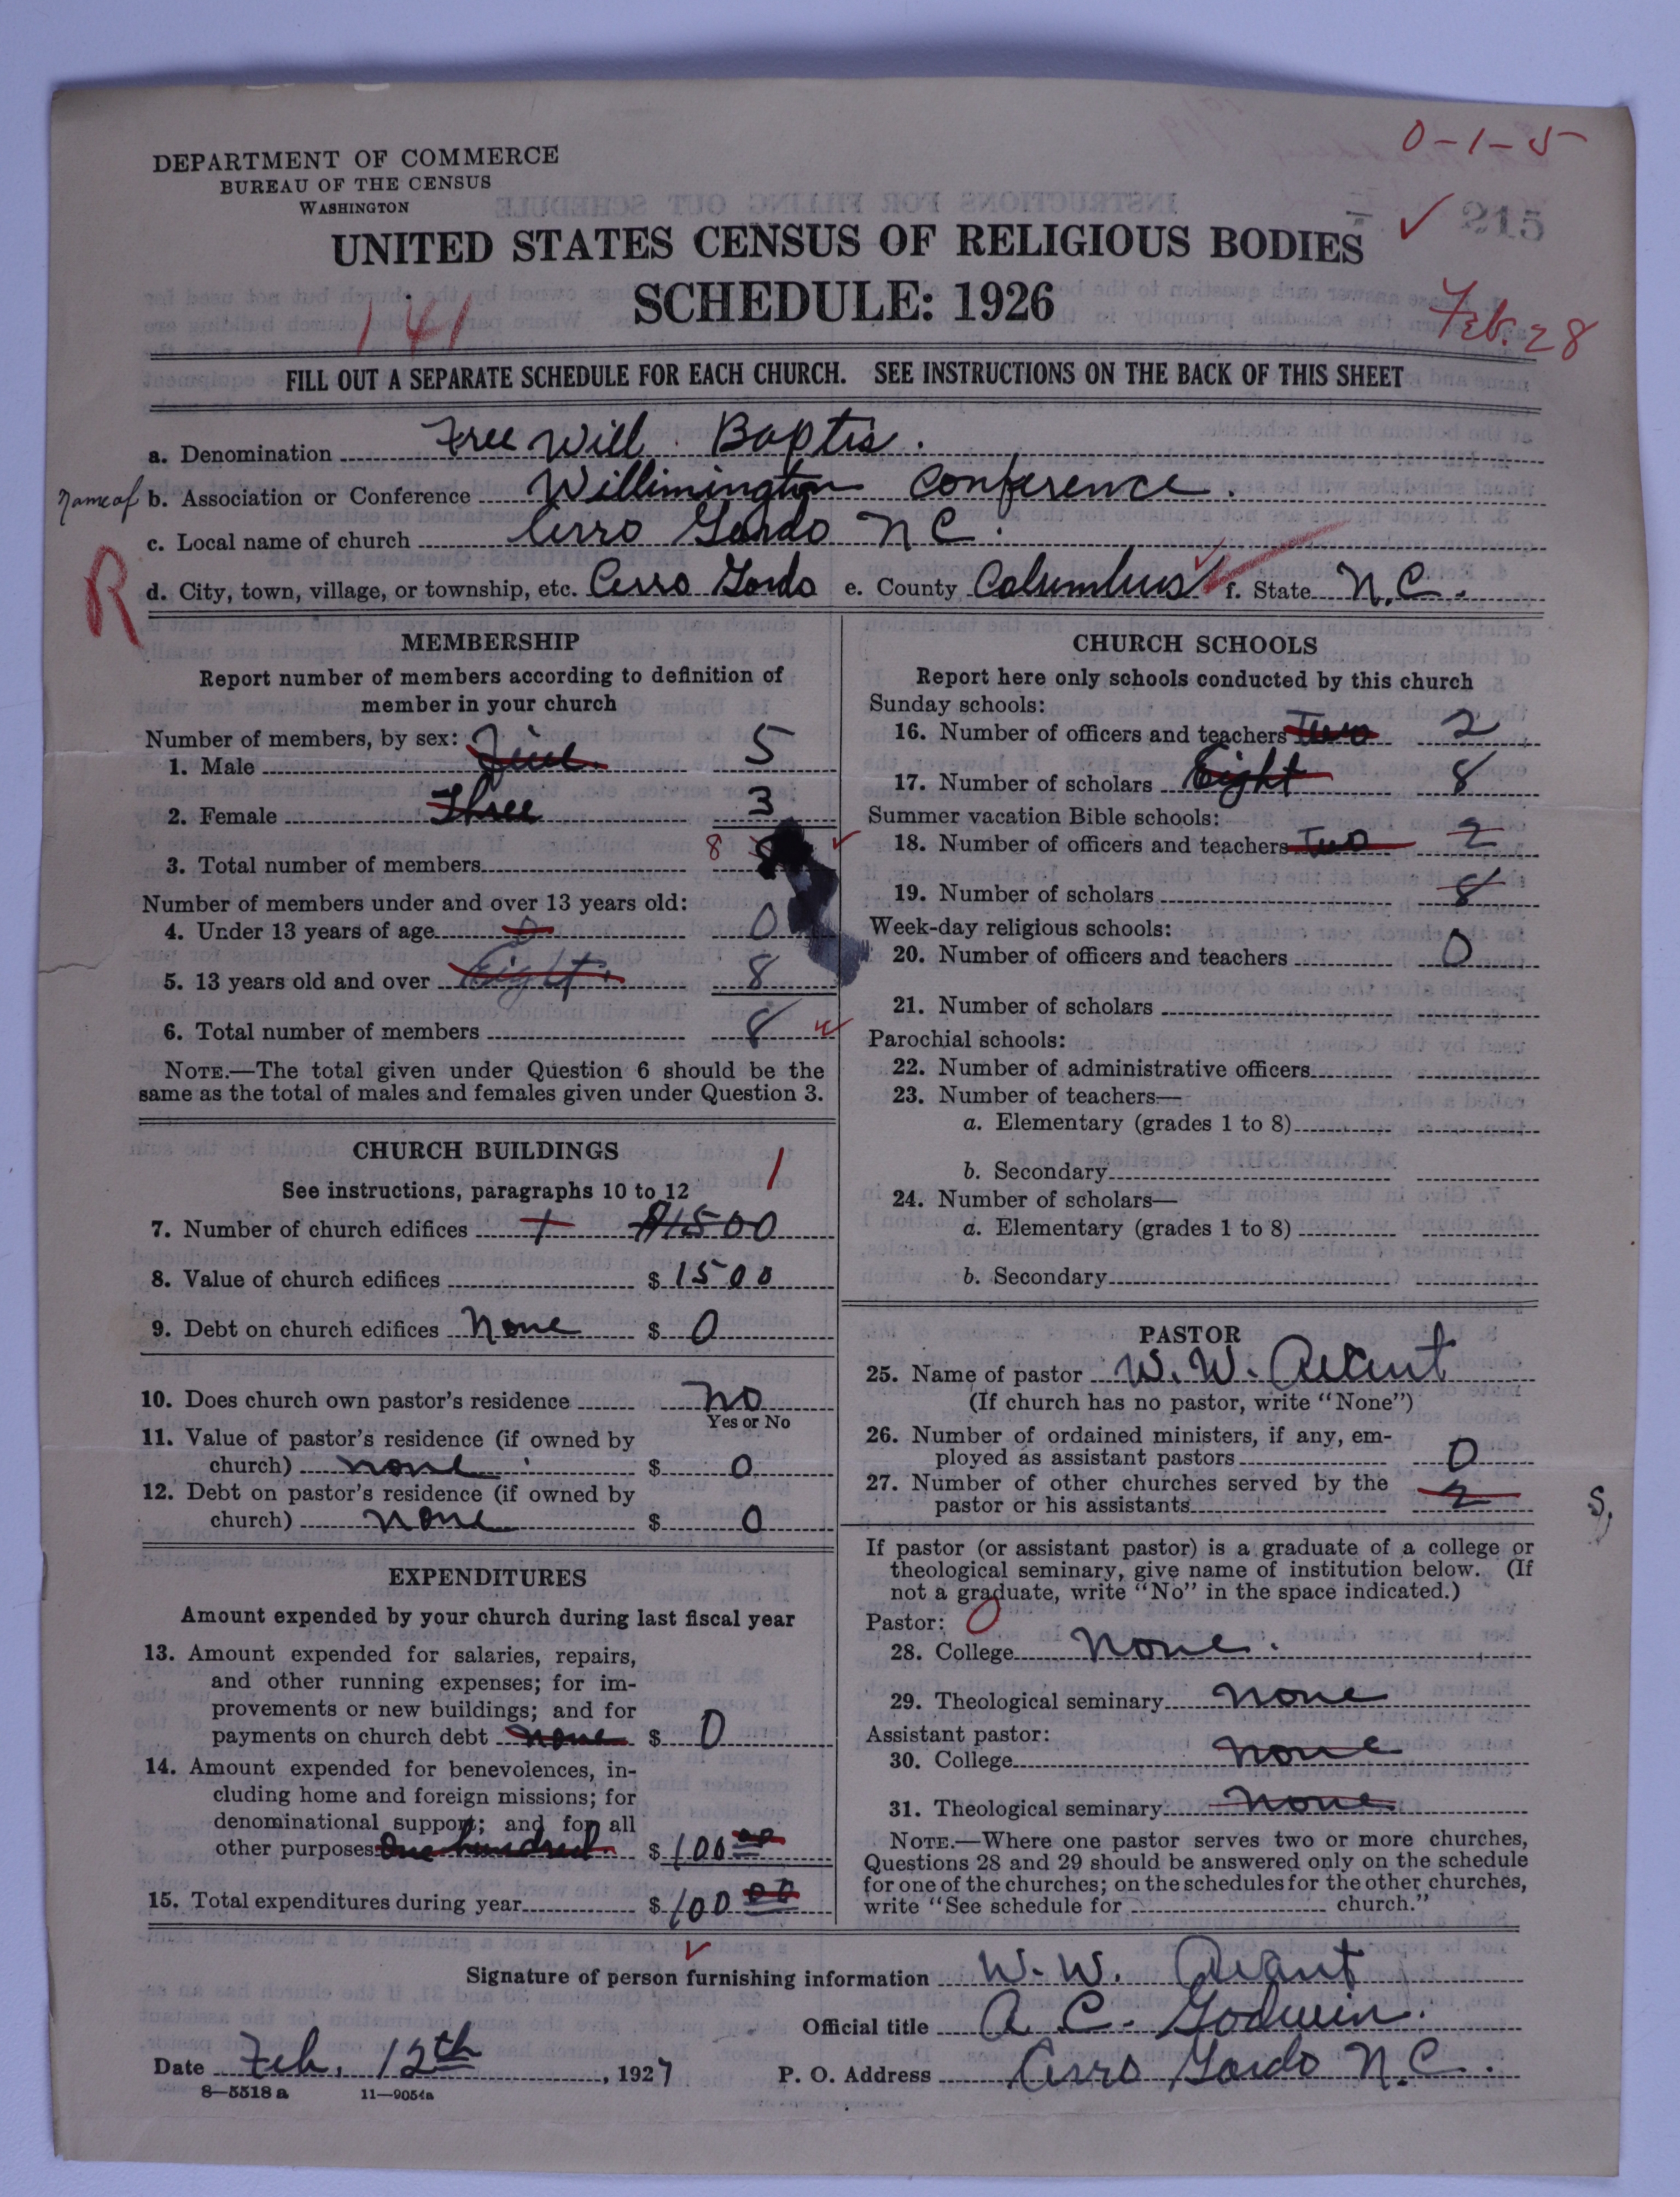 0-1-5
DEPARTMENT OF COMMERCE
BUREAU OF THE CENSUS
WASHINGTON
215
UNITED STATES CENSUS OF RELIGIOUS BODIES
SCHEDULE: 1926
141
Feb. 28
FILL OUT A SEPARATE SCHEDULE FOR EACH CHURCH. SEE INSTRUCTIONS ON THE BACK OF THIS SHEET
a. Denomination Free Will Baptis.
Name of b. Association or Conference Willimington Conference.
c. Local name of church Cerro Gordo N C.
R
d. City, town, village, or township, etc. Cerro Gordo e. County Columbus f. State N.C.
MEMBERSHIP
Report number of members according to definition of
member in your church
Number of members, by sex:
1. Male Five. 5
2. Female Three 3
3. Total number of members 8 8
Number of members under and over 13 years old:
4. Under 13 years of age 0 0
5. 13 years old and over Eight. 8
6. Total number of members 8
NOTE.—The total given under Question 6 should be the
same as the total of males and females given under Question 3.
CHURCH BUILDINGS
See instructions, paragraphs 10 to 12
1
7. Number of church edifices 1 $1500
8. Value of church edifices $1500
9. Debt on church edifices None $ 0
10. Does church own pastor's residence No
Yes or No
11. Value of pastor's residence (if owned by
church) none $ 0
12. Debt on pastor's residence (if owned by
church) none $ 0
EXPENDITURES
Amount expended by your church during last fiscal year
13. Amount expended for salaries, repairs,
and other running expenses; for im-
provements or new buildings; and for
payments on church debt none $ 0
14. Amount expended for benevolences, in-
cluding home and foreign missions; for
denominational support; and for all
other purposes One hundred $100 00
15. Total expenditures during year $100 00
CHURCH SCHOOLS
Report here only schools conducted by this church
Sunday schools:
16. Number of officers and teachers Two 2
17. Number of scholars Eight 8
Summer vacation Bible schools:
18. Number of officers and teachers Two 2
19. Number of scholars 8
Week-day religious schools:
20. Number of officers and teachers 0
21. Number of scholars
Parochial schools:
22. Number of administrative officers
23. Number of teachers—
a. Elementary (grades 1 to 8)
b. Secondary
24. Number of scholars—
a. Elementary (grades 1 to 8)
b. Secondary
PASTOR
25. Name of pastor W. W. Avant
(If church has no pastor, write "None")
26. Number of ordained ministers, if any, em-
ployed as assistant pastors 0
27. Number of other churches served by the
pastor or his assistants 2
S,
If pastor (or assistant pastor) is a graduate of a college or
theological seminary, give name of institution below. (If
not a graduate, write "No" in the space indicated.)
Pastor: 0
28. College None.
29. Theological seminary none
Assistant pastor:
30. College none
31. Theological seminary none
NOTE.—Where one pastor serves two or more churches,
Questions 28 and 29 should be answered only on the schedule
for one of the churches; on the schedules for the other churches,
write "See schedule for church."
Signature of person furnishing information W. W. Avant
Official title A C. Godwin.
Date Feb. 12th, 1927 P. O. Address Cerro Gordo N.C.
8—5518 a 11—9051a